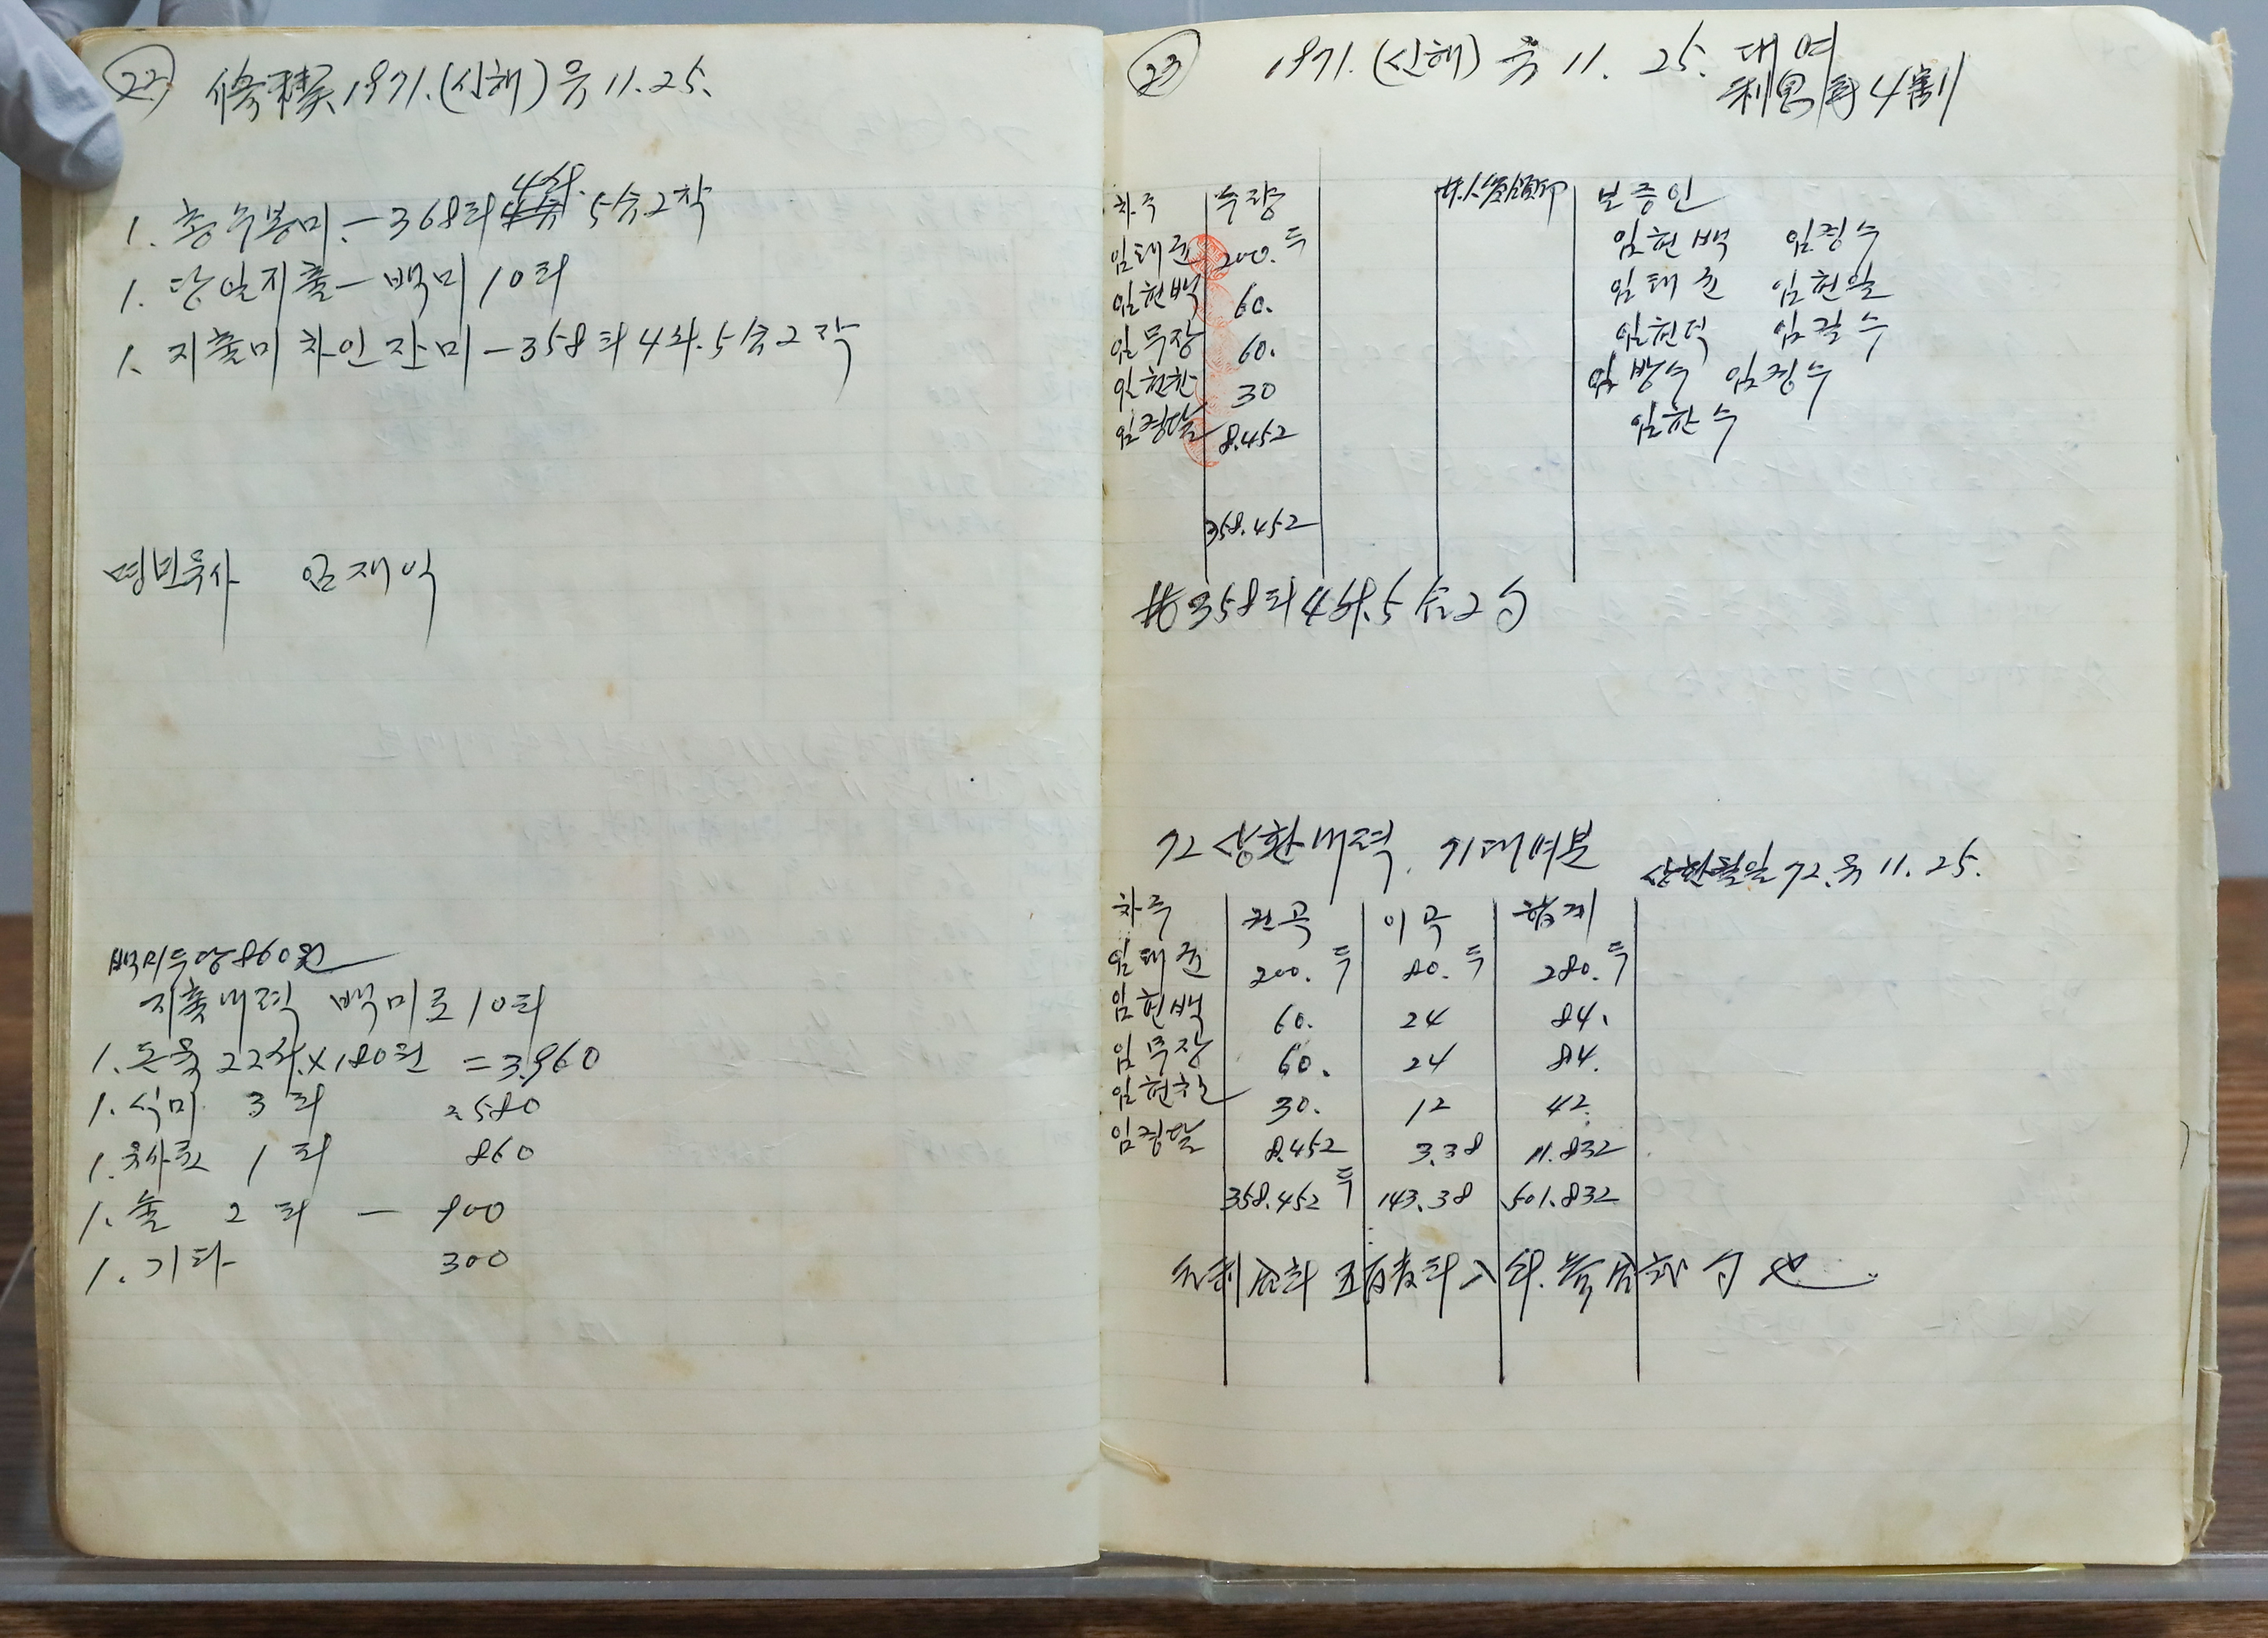 22
修稧 1971.(신해) 음 11.25.
1. 총수봉미 - 368되 4화. 5송 2작
1. 당일지출 - 백미 10되
1. 지출미 차인잔미 - 358되 4화. 5송 2작
명년유사 임재익
백미두당 860원
지출내력 백미로 10되
1. 돈육 22 × 180원 = 3.960
1. 식미 3되 2.580
1. 유사료 1되 860
1. 술 2되 - 900
1. 기타 300
23
1971.(신해) 음 11. 25. 대여
利息 4割
차주 수량 보증인
임태준 200.두 임현백 임정수
임현백 60. 임태준 임현달
임무장 60. 임현덕 임길수
임현찬 30 임방수 임정수
임정달 8.452 임한수
358.452
共 358되 4화. 5송 2勺
72 상환내력. 71대여분 상환월일 72.음 11. 25.
차주 원곡 이곡 합계
임태준 200.두 80.두 280.두
임현백 60. 24 84.
임무장 60. 24 84.
임현찬 30. 12 42.
임정달 8.452 3.38 11.832
358.452두 143.38 501.832
勺 也